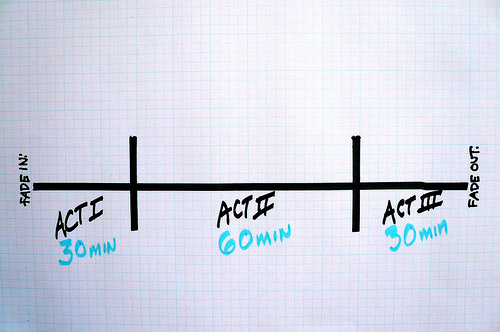 FADE IN:
ACT I
30 MIN
ACT II
60 MIN
ACT III
30 min
FADE OUT.